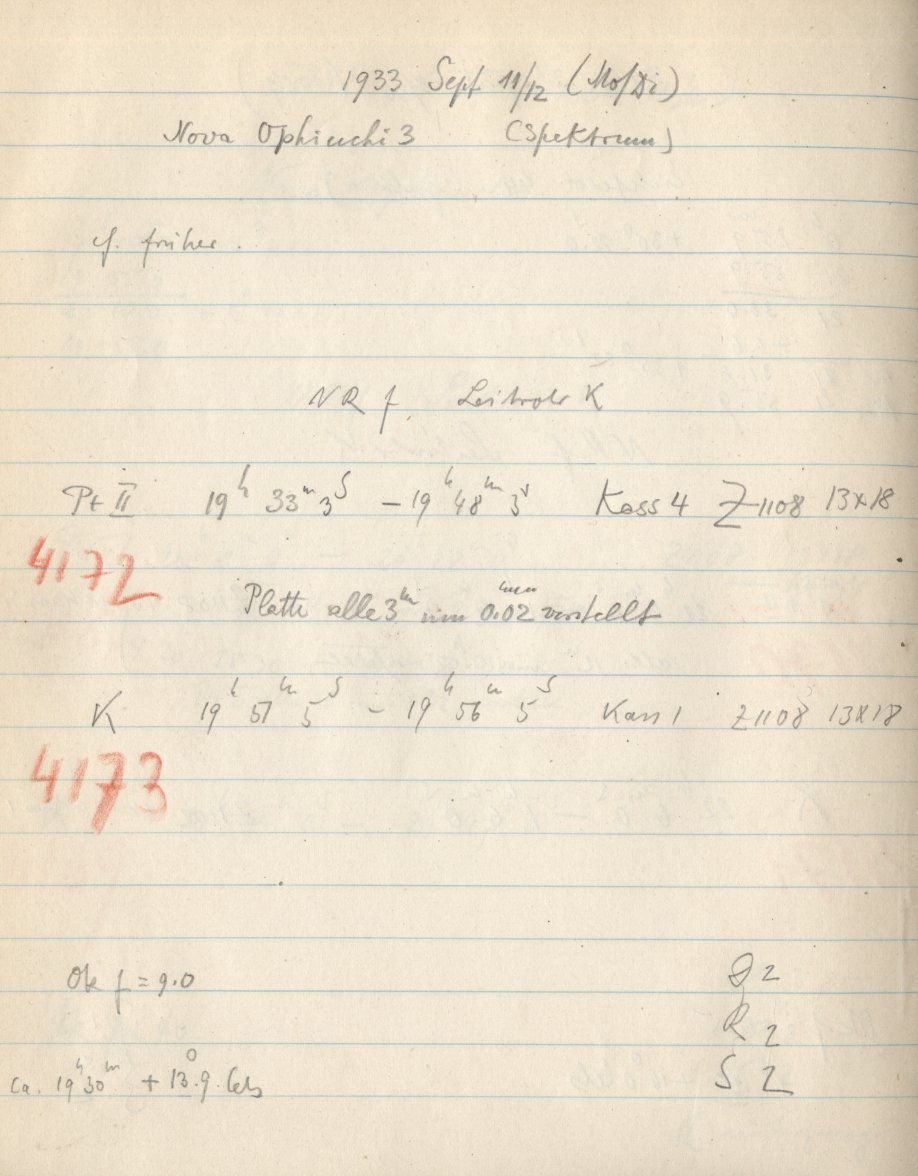 1933 Sept 11/12 (Mo/Di)
Nova Ophiuchi 3 (Spektrum)
cf. früher.
NR f Leitrohr K
Pt II 19h 33m 3s – 19h 48m 3s Kass 4 Z 1108 13x18
4172
Platte alle 3m um 0.02mm verstellt
K 19h 51m 5s – 19h 56m 5s Kass 1 Z 1108 13x18
4173
Ok f = 9.0
2
R 2
S 2
ca. 19h 30m + 13.9° Cels